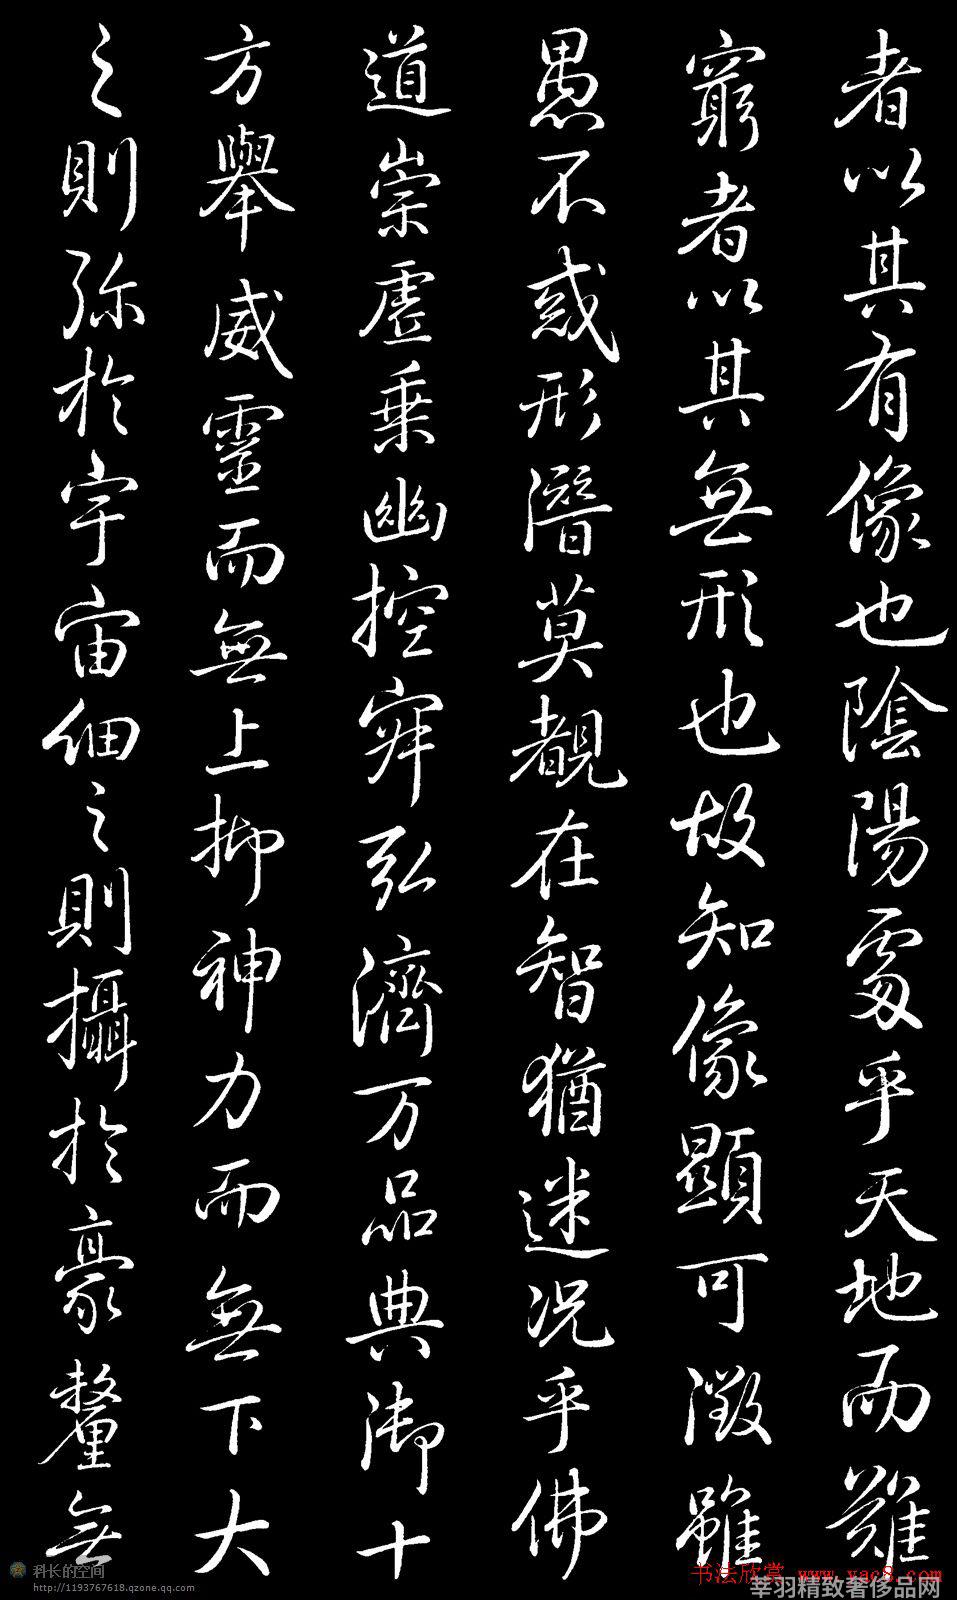 者以其有像也陰陽處乎天地而難
窮者以其無形也故知像顯可徵雖
愚不惑形潛莫覩在智猶迷況乎佛
道崇虛乗幽控寂弘濟万品典御十
方舉威靈而無上抑神力而無下大
之則弥於宇宙細之則攝於豪釐無
科长的空间
http://1193767618.qzone.qq.com
书法欣赏 www.yac8.com
莘羽精致奢侈品网